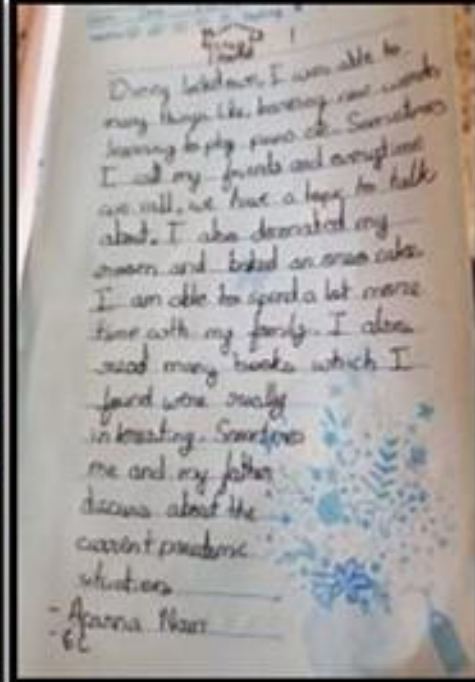 During lockdown, I was able to
many things like, learning new words
learning to play piano etc. Sometimes
I call my friends and everytime
we call, we have a topic to talk
about. I also decorated my
room and baked an oreo cake.
I am able to spend a lot more
time with my family. I also
read many books which I
found were really
interesting. Sometimes
me and my father
discuss about the
current pandemic
situations
- Aparna Nair
- 6C